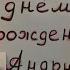 днем
рожден
Андрю